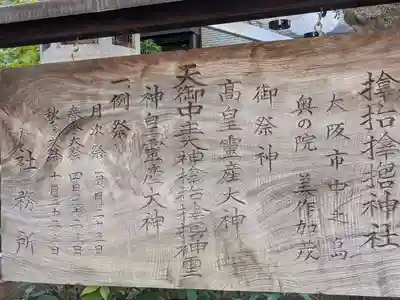 捨㧡捨㨐神社
大阪市中之島
奥の院 美作加茂
御祭神
高皇霊産大神
天御中主大神
神皇霊産大神
一例祭
月次祭 毎月二十三日
春季大祭 四月二十三日
秋季大祭 十月二十三日
社務所